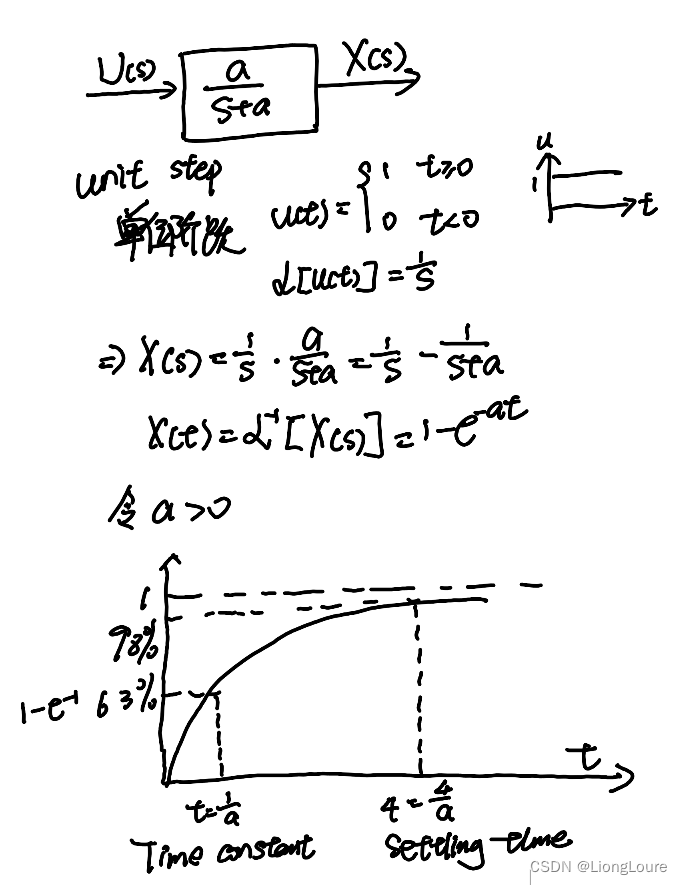 U(s) a/(s+a) X(s)
unit step u(t)={1 t≥0
单位阶跃 0 t<0
u
1
t
ℒ[u(t)]=1/s
⇒ X(s)=1/s · a/(s+a) = 1/s - 1/(s+a)
X(t)=ℒ⁻¹[X(s)]=1-e^-at
令 a>0
1
98%
1-e⁻¹ 63%
t
t=1/a 4=4/a
Time constant Settling time
CSDN @LiongLoure